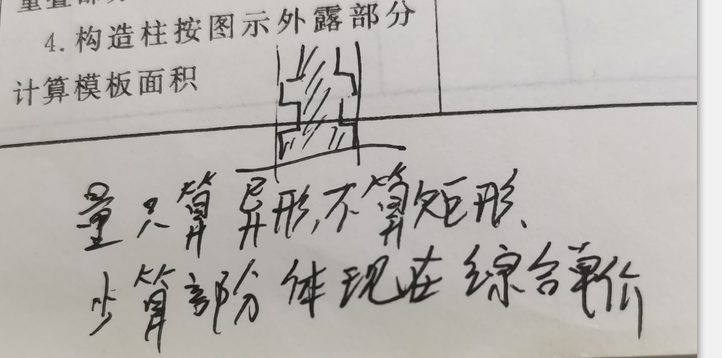 4.构造柱按图示外露部分
计算模板面积
量只算异形,不算矩形、
少算部分体现在综合单价